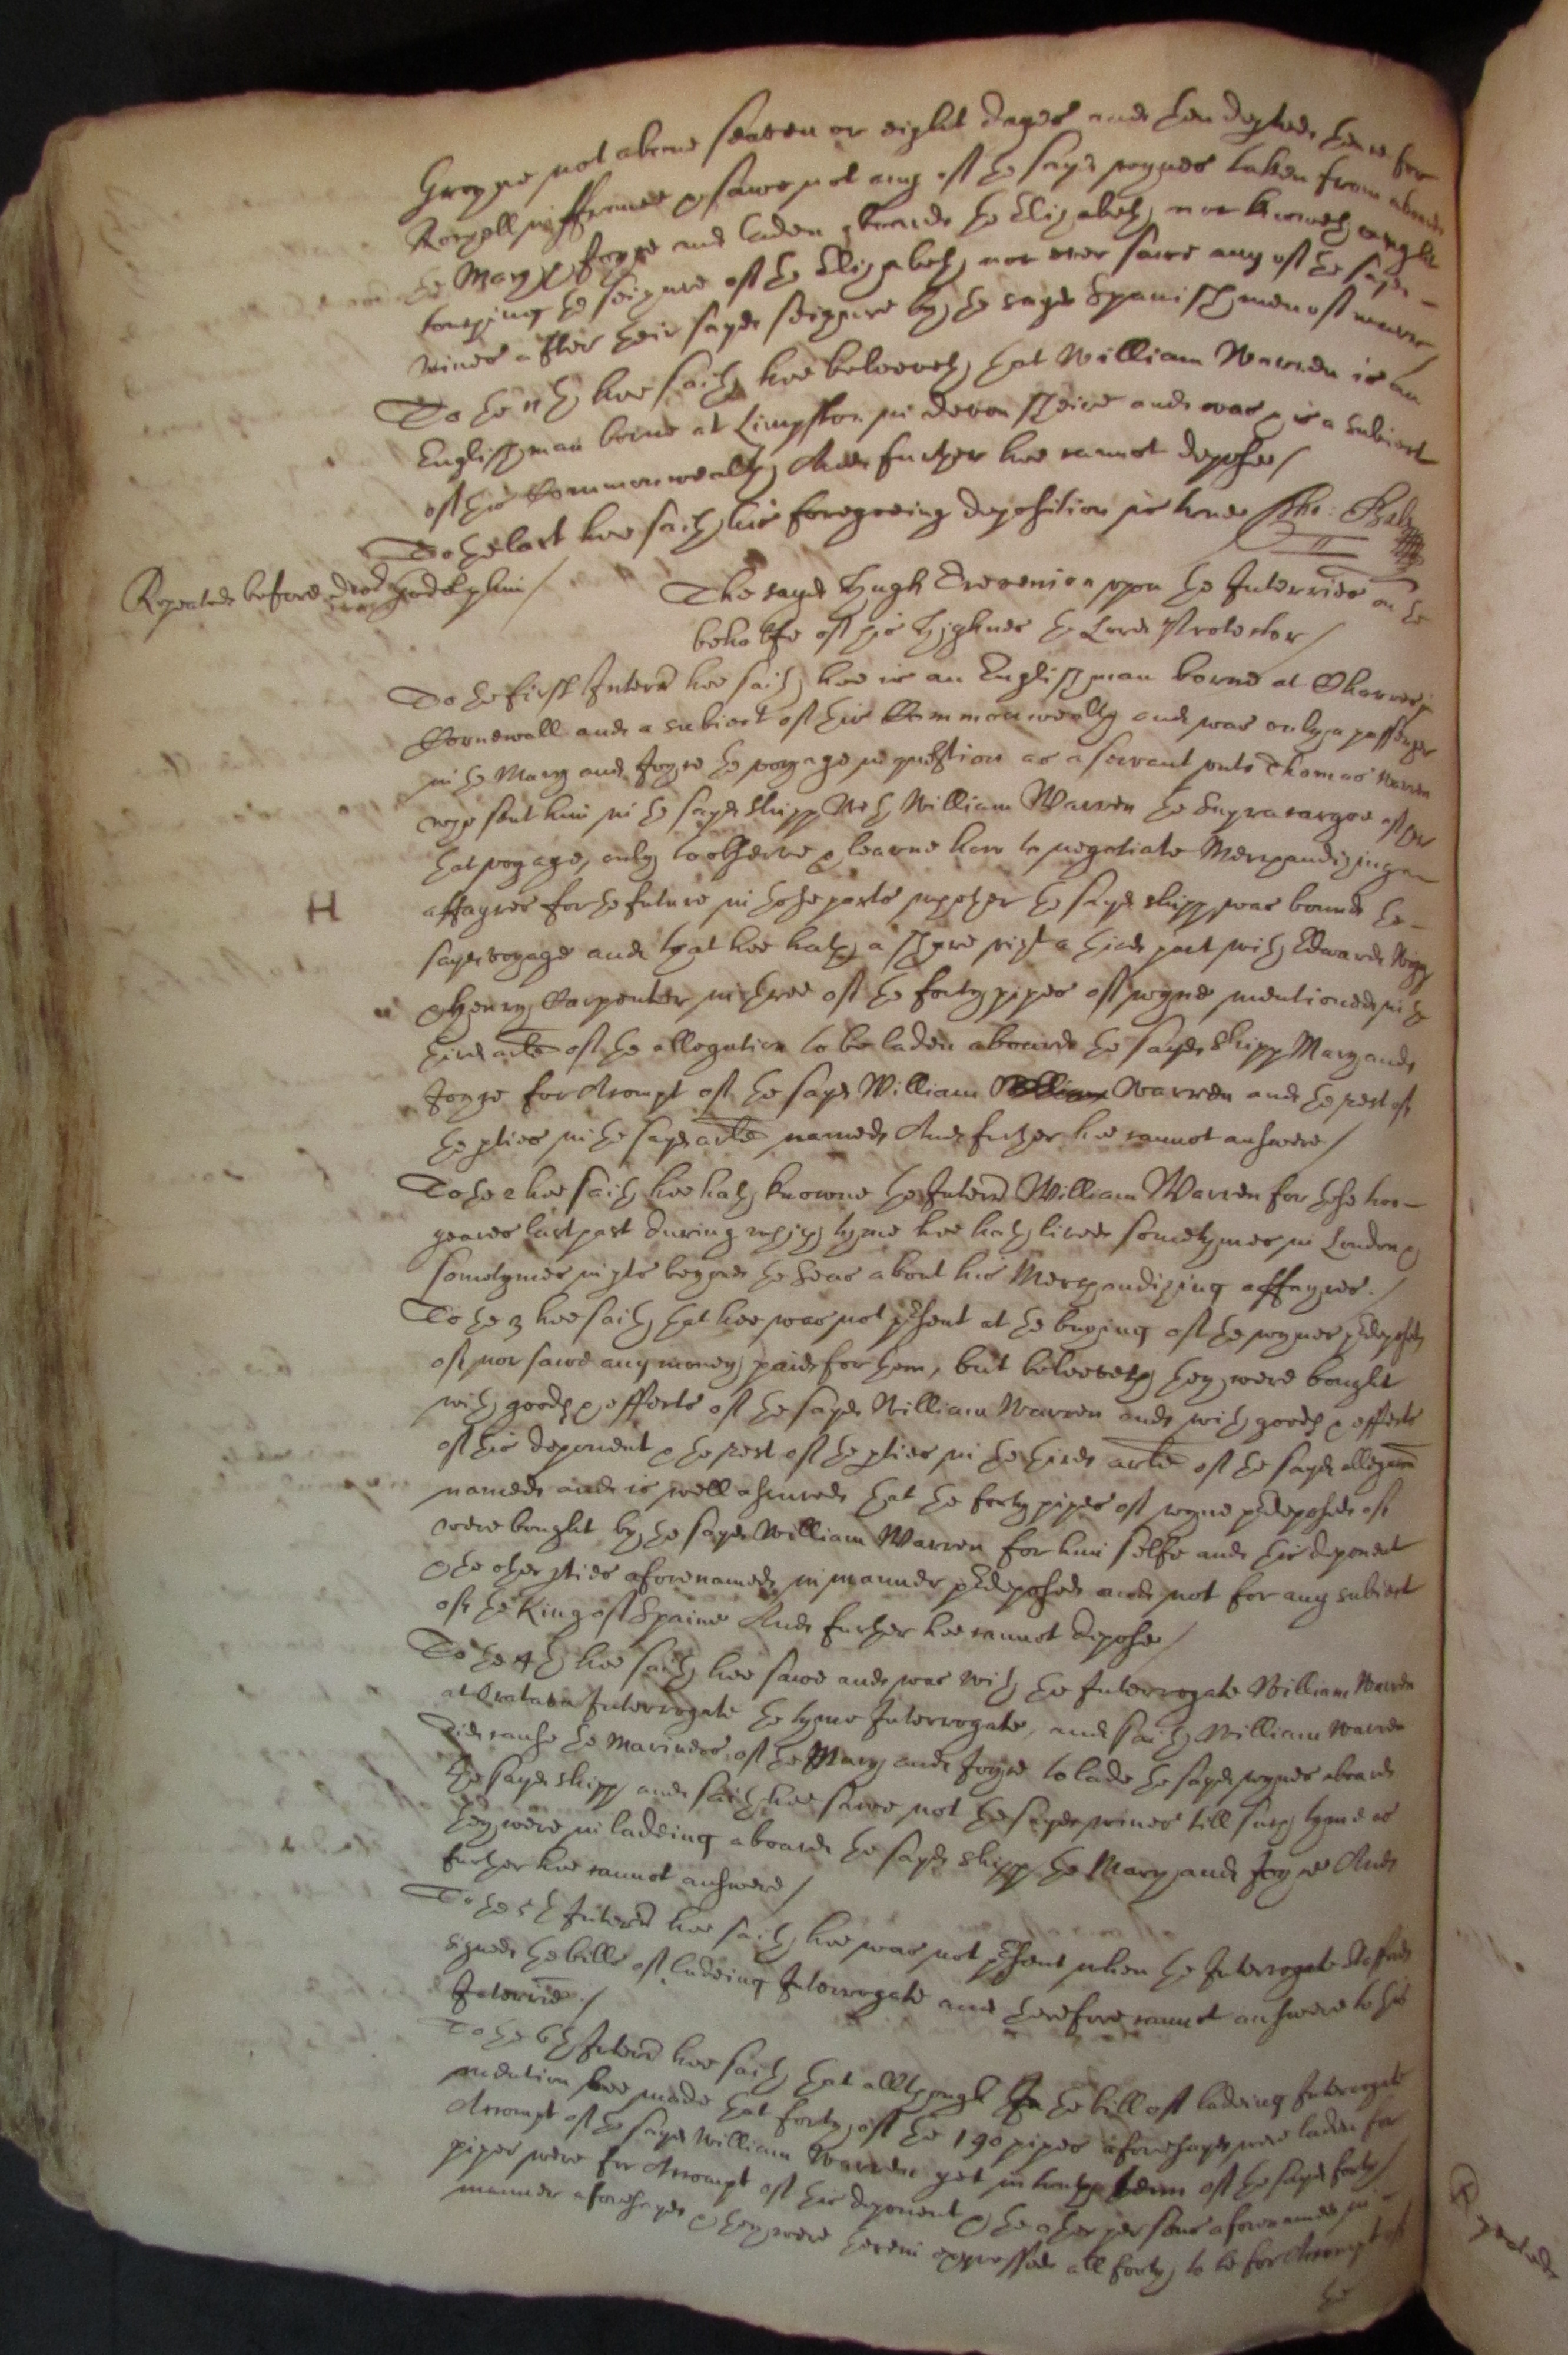 Groyne not above seaven or eight dayes and then departed thence for
Rochell in ffrance & sawe not any of the sayd wynes taken from aboard
the Mary & Joyce and laden aboard the Elizabeth, nor knoweth ought
touching the seizure of the Elizabeth, nor ever sawe any of the sayd
wines after their sayd seizure by the sayd Spanish men of warr/
To the 11th hee saith hee beleeveth that William Warren is an
Englishman borne at Limpston in Devonsheire and was & is a subiect
of this Commonwealth, And further hee cannot depose/
To the last hee saith his foregoeing deposition is true/
Repeated before doctor Godolphin/
The sayd Hugh Trevenion upon the Interries on the
behalfe of his Highnes the Lord Protector/
To the first Interrie hee saith hee is an Englishman borne at
Cornewall and a subiect of this Commonwealth and was only a passenger
in the Mary and Joyce the voyage in question as a servant unto Thomas Warren
who sent him in the sayd shipp with William Warren the Supracargoe of her
that voyage, only to observe & learne how to negotiate Merchandizing
affayres for the future in those parts whither the sayd shipp was bound the
H
sayd voyage and that hee hath a share vizt a third part with Edward
& Henry Carpenter in three of the forty pipes of wyne mentioned in the
third arlе of the allegation to be laden aboard the sayd shipp Mary and
Joyce for Accompt of the sayd William Warren and the rest of
the pties in the sayd arle named And further hee cannot answere/
To the 2 hee saith hee hath knowne the Interrate William Warren for these two
yeares last past during which tyme hee hath lived sometymes in London &
sometymes in pts beyond the Seas about his Merchandizing affayres./
To the 3 hee saith that hee was not present at the buying of the wynes predeposed
of nor sawe any money paid for them, but beleeveth they were bought
with goods & effects of the sayd William Warren and with goods & effects
of this deponent & the rest of the pties in the third arle of the sayd allegation
named and is well assured that the forty pipes of wyne predeposed of
were bought by the sayd William Warren for him selfe and this deponent
& the other pties aforenamed in manner predeposed and not for any subiect
of the King of Spaine And further hee cannot depose/
To the 4th hee saith hee sawe and was with the Interrogate William Warren
at Oratava Interrogate the tyme Interrogate, and saith William Warren
did cause the Mariners of the Mary and Joyce to lade the sayd wynes aboard
the sayd shipp and saith hee sawe not the sayd wines till such tyme as
they were in ladeing aboard the sayd shipp the Mary and Joyce And
further hee cannot answere/
To the 5th Interrie hee saith hee was not present when the Interrogate
signed the bills of ladeing Interrogate and therefore cannot answere to this
Interrie./
To the 6th Interrie hee saith that allthough In the bill of ladeing Interrogate
mention bee made that forty of the 190 pipes aforesayd were laden for
Accompt of the sayd William Warren yet in truth seven of the sayd forty
pipes were for Accompt of this deponent & the other persons aforenamed in
manner aforesayd & they were therein expressed all forty to be for Accompt of
the